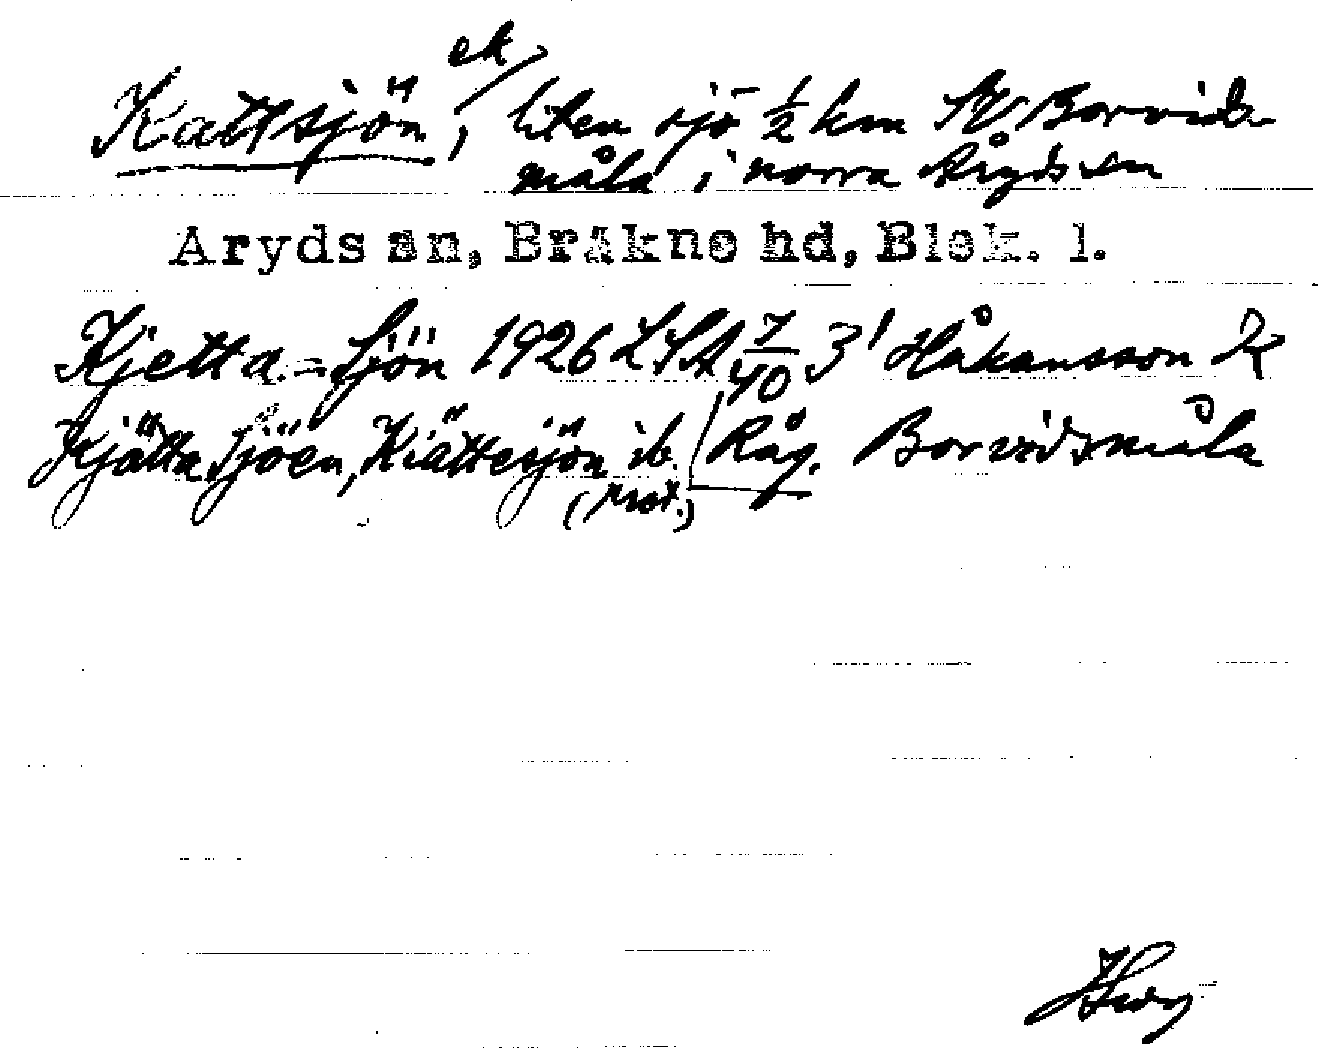 ek
Kattsjön, liten sjö ½ km SV Borvids-
måla i norra Åryds sn
Aryds sn, Bräkne hd, Blek. l.
Kjetta-Sjön 1926 LSA 7/40 3' Håkansson K
Kjätta Sjöen, Kiättesjön ib. Råg. Borvidsmåla
(prot.)